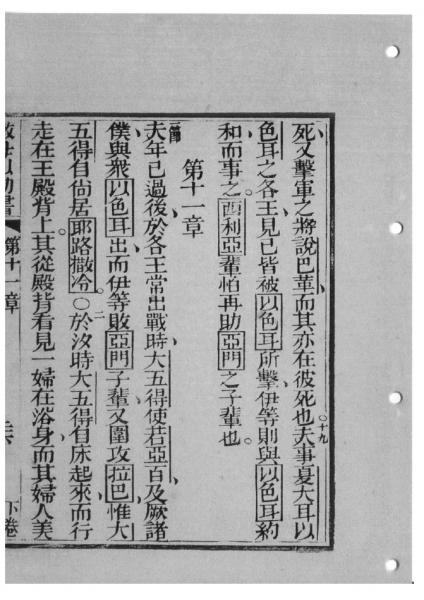 死又擊軍之將說巴革而其亦在彼死也○十九夫事夏大耳以
色耳之各王見已皆被以色耳所擊伊等則與以色耳約
和而事之西利亞輩怕再助亞門之子輩也
第十一章
一節夫年已過後於各王常出戰時大五得使若亞百及厥諸
僕與衆以色耳出而伊等敗亞門子輩又圍攻拉巴惟大
五得自尙居耶路撒冷○二於汐時大五得自床起來而行
走在王殿背上其從殿背看見一婦在浴身而其婦人美
第十一章 下卷